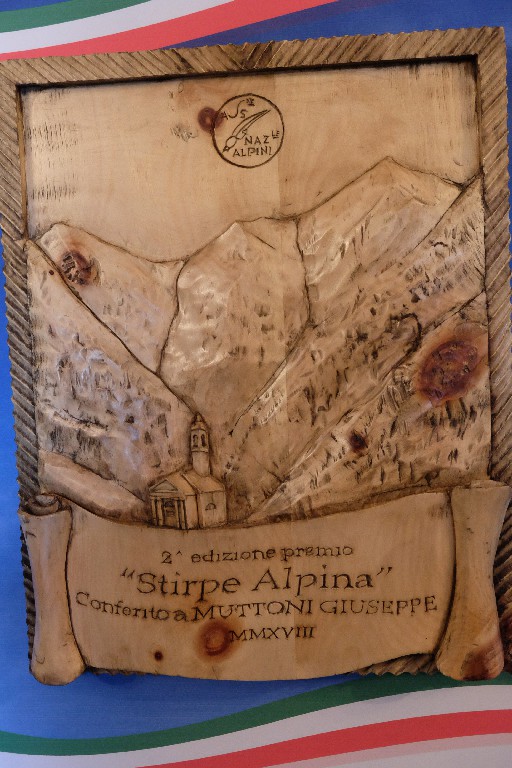 ASS NE
NAZ LE
ALPINI
2^ edizione premio
"Stirpe Alpina"
Conferito a MUTTONI GIUSEPPE
MMXVIII